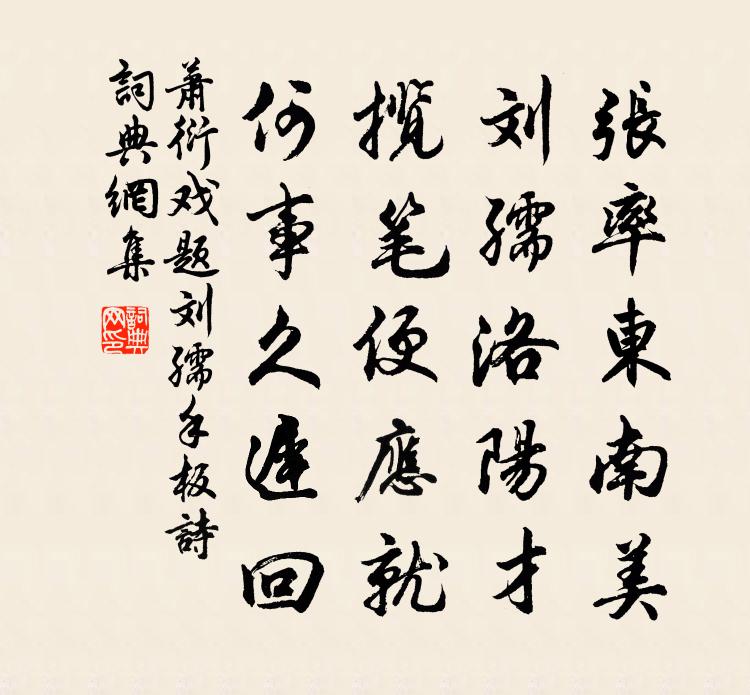 張率東南美
刘孺洛陽才
揽笔便應就
何事久遲回
萧衍戏题刘孺手板詩
詞典網集
詞典网印